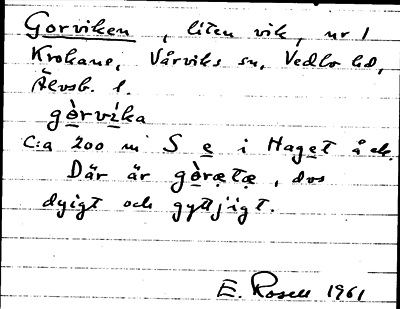 Gorviken, liten vik, nr 1
Krokane, Vårviks sn, Vedbo hd,
Älvsb. l.
gòrvíka
C:a 200 m S e i Haget åck.
Där är gòrætæ, dvs
dyigt och gyttjigt.
E. Rosell 1961